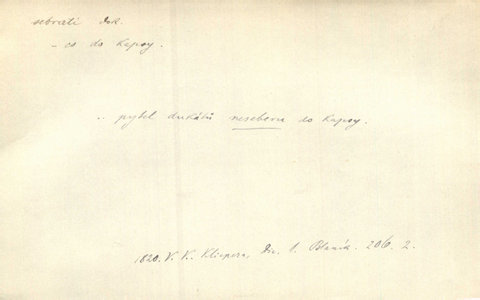 sebrati dok.
– co do kapsy.
.. pytel dukátů neseberu do kapsy.
1820. V. K. Klicpera, Div. I. Blaník. 206. 2.